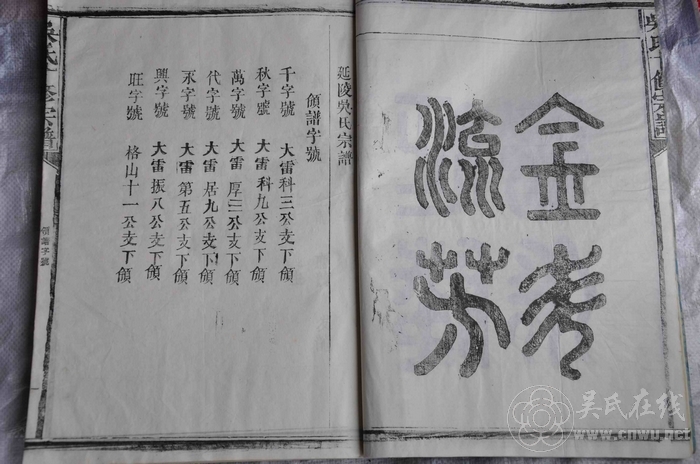 吳氏十修宗譜
金
流芳
延陵吳氏宗譜
領譜字號
千字號 大雷科三公支下領
秋字號 大雷科九公支下領
萬字號 大雷厚三公支下領
代字號 大雷居九公支下領
永字號 大雷第五公支下領
興字號 大雷振八公支下領
旺字號 格山十一公支下領
吳氏十修宗譜
領譜字號
吴氏在线
www.cnwu.net